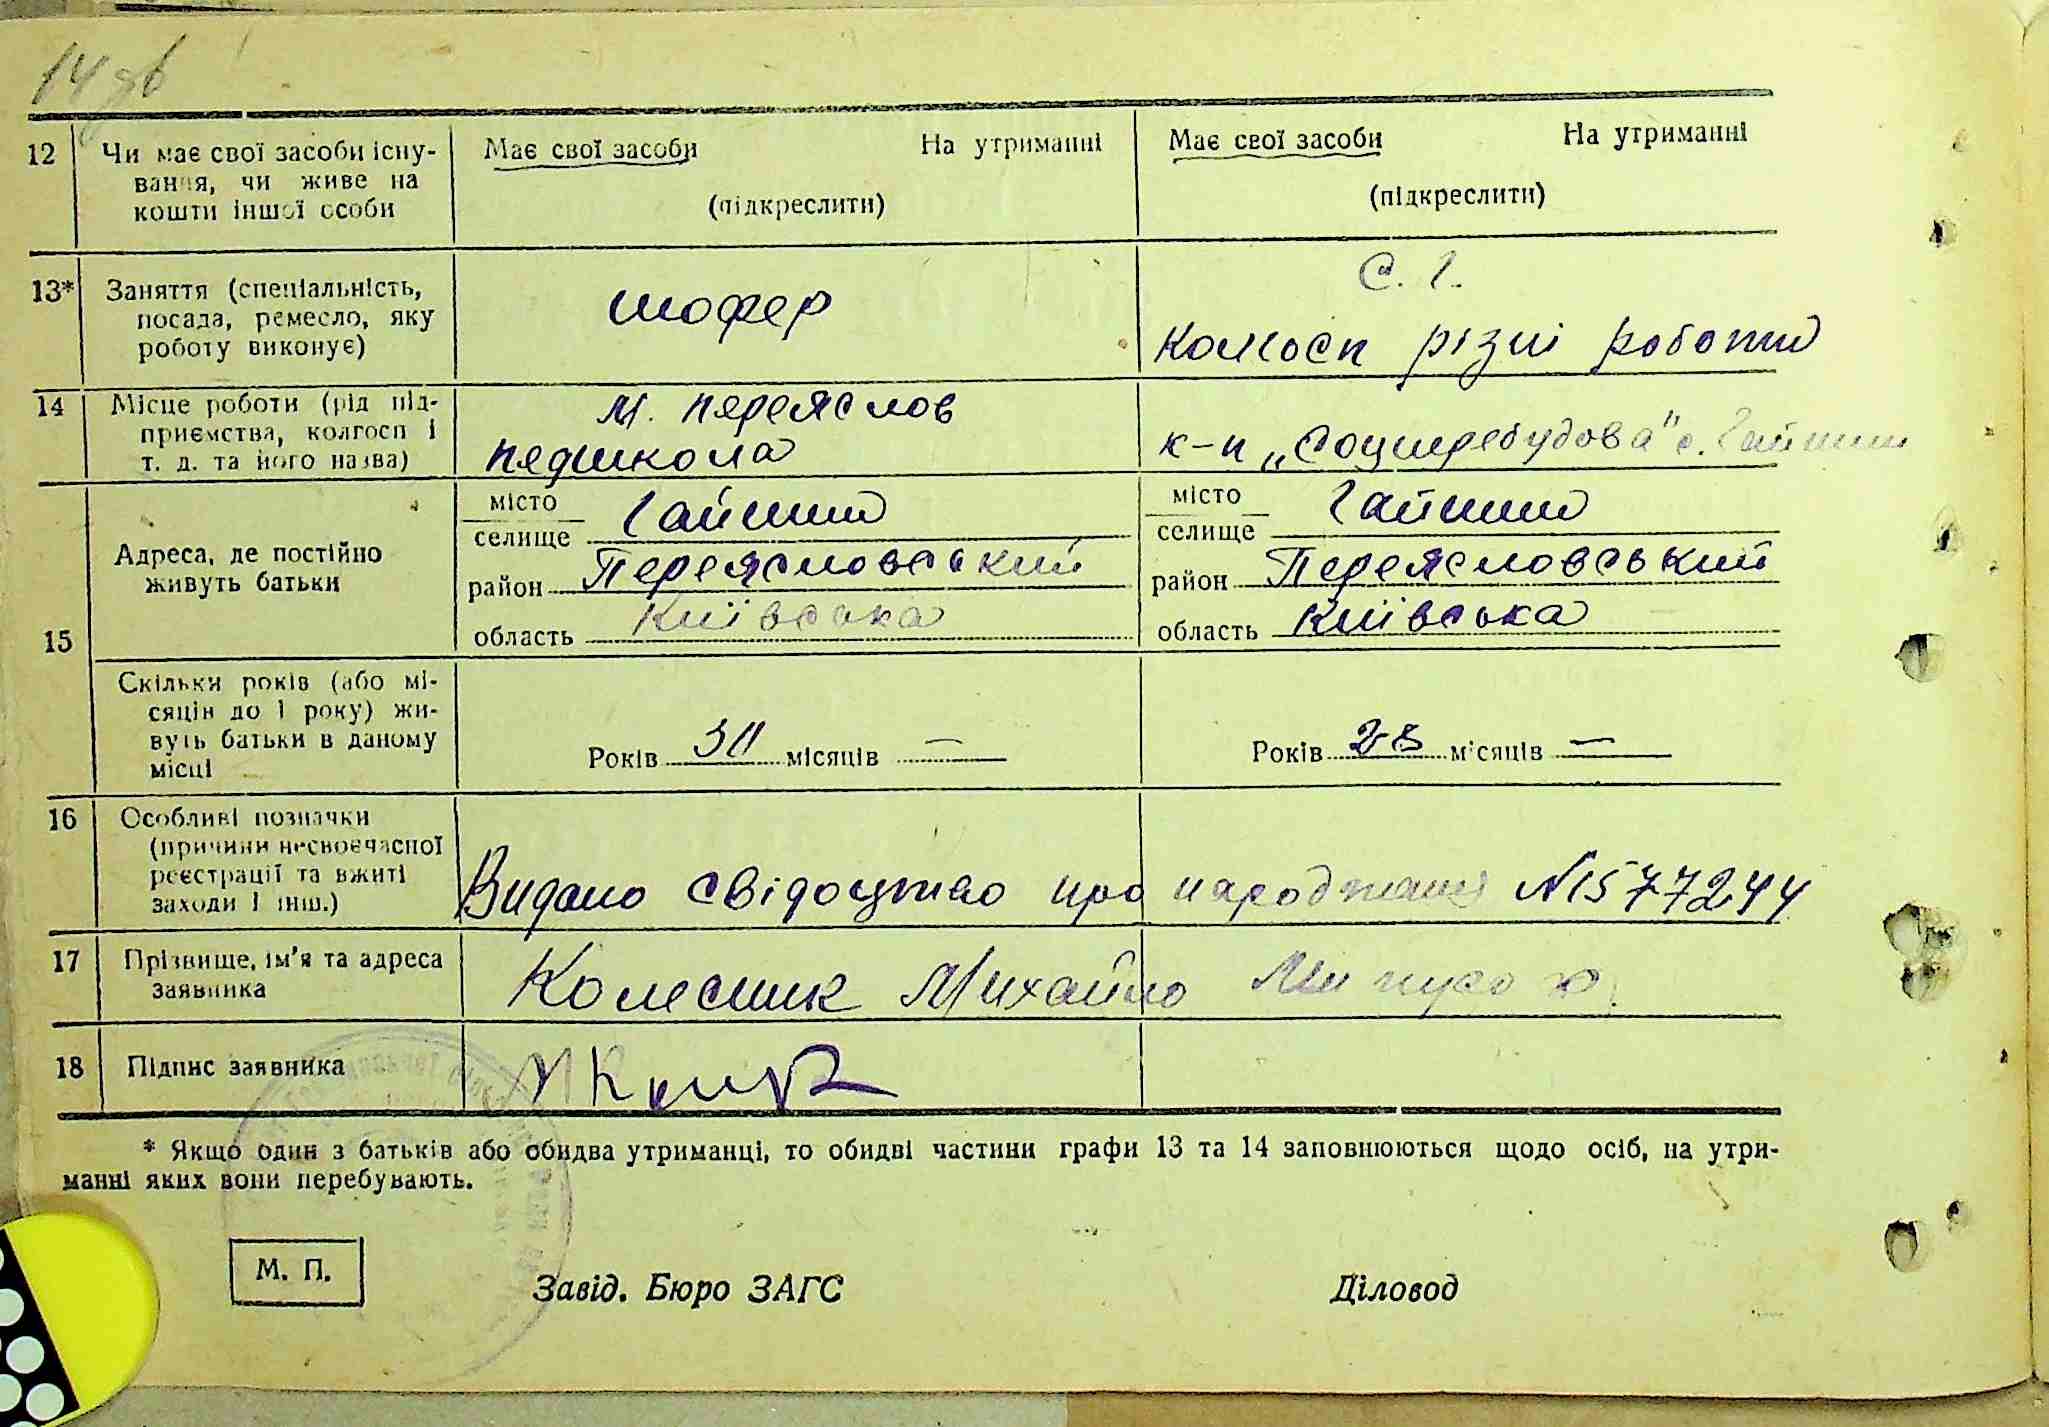 14 зв
12 Чи має свої засоби існу- Має свої засоби На утриманні Має свої засоби На утриманні
вання, чи живе на
кошти іншої особи (підкреслити) (підкреслити)
13* Заняття (спеціальність, шофер С. Г.
посада, ремесло, яку
роботу виконує) Колгосп різні роботи
14 Місце роботи (рід під- м. Переяслов
приємства, колгосп і педшкола к-п „Соцперебудова" с. Гайшин
т. д. та його назва)
15 Адреса, де постійно
живуть батьки
місто
селище Гайшин
район Переясловський
область Київська
місто
селище Гайшин
район Переясловський
область Київська
Скільки років (або мі-
сяців до 1 року) жи-
вуть батьки в даному
місці
Років 30 місяців — Років 28 місяців —
16 Особливі позначки
(причини несвоєчасної
реєстрації та вжиті
заходи і інш.)
Видано свідоцтво про народження №577244
17 Прізвище, ім'я та адреса
заявника
Колесник Михайло
18 Підпис заявника
* Якщо один з батьків або обидва утриманці, то обидві частини графи 13 та 14 заповнюються щодо осіб, на утри-
манні яких вони перебувають.
М. П. Завід. Бюро ЗАГС Діловод